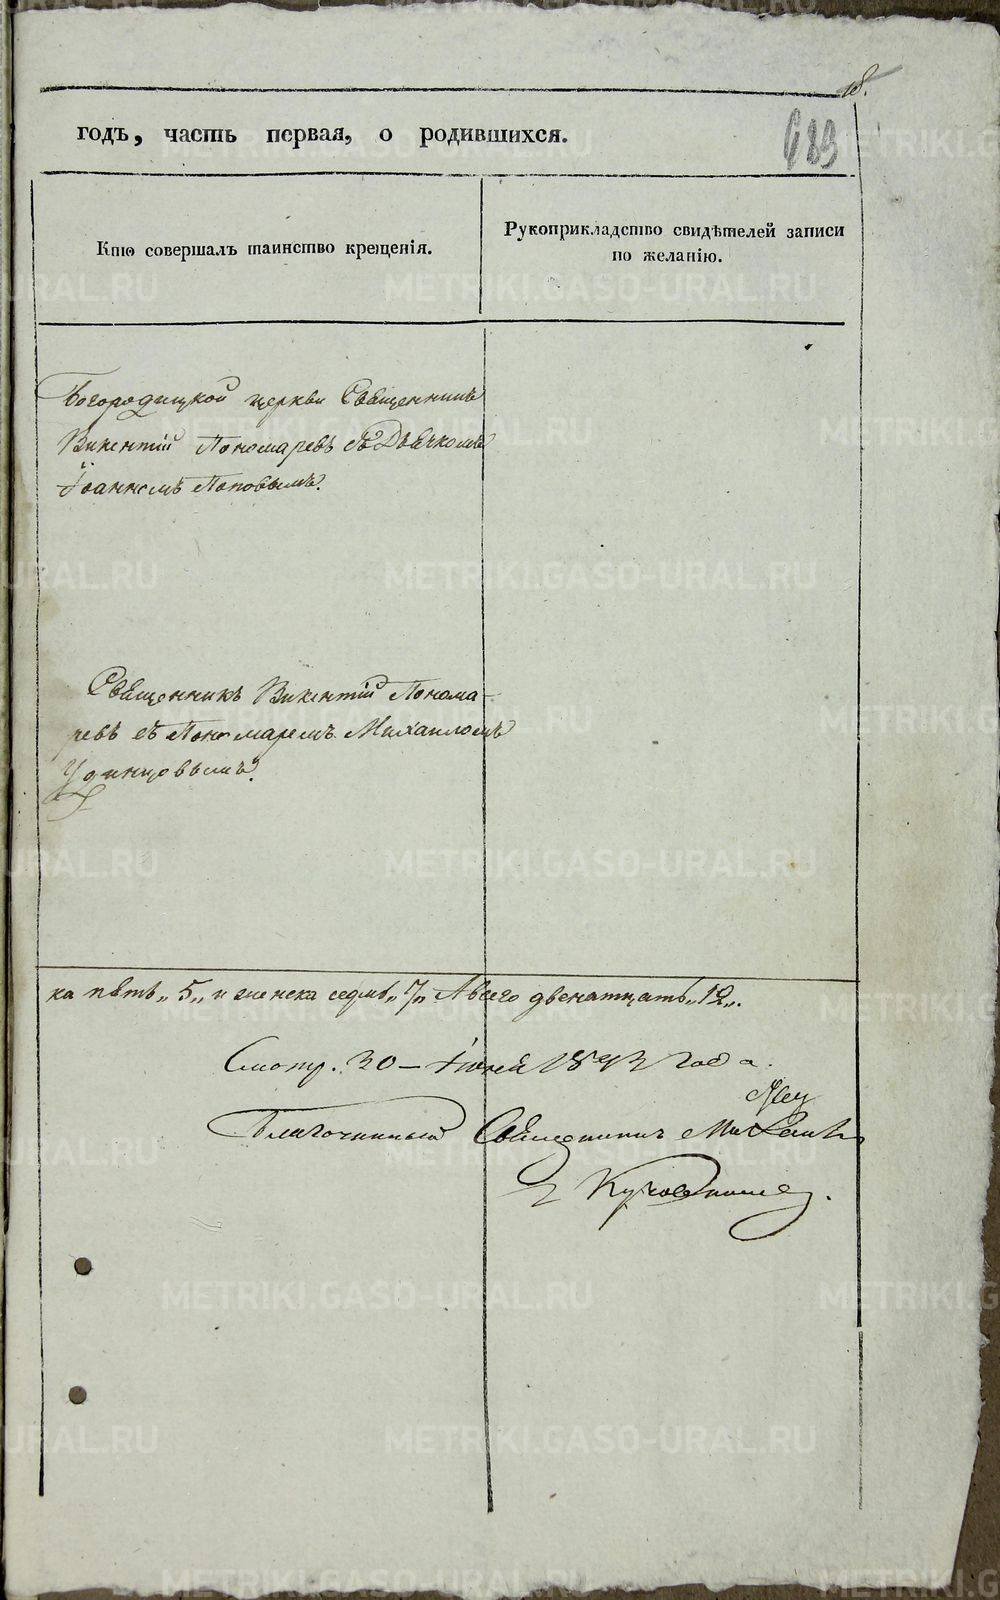 18.
годъ, часть первая, о родившихся.
689
Кто совершалъ таинство крещенія.
Рукоприкладство свидѣтелей записи
по желанію.
Богородицкой церкви Священникъ
Викентій Пономаревъ съ Дьячкомъ
Іоанномъ Поповымъ.
Священникъ Викентій Понома-
ревъ съ Пономаремъ Михаиломъ
Удинцовымъ.
ка пять „5„ и женска седмь „7„ А всего двенатцать „12„.
Смотр. 30 - Іюня 1843 года.
Благочинный Священникъ Михаилъ
METRIKI.GASO-URAL.RU